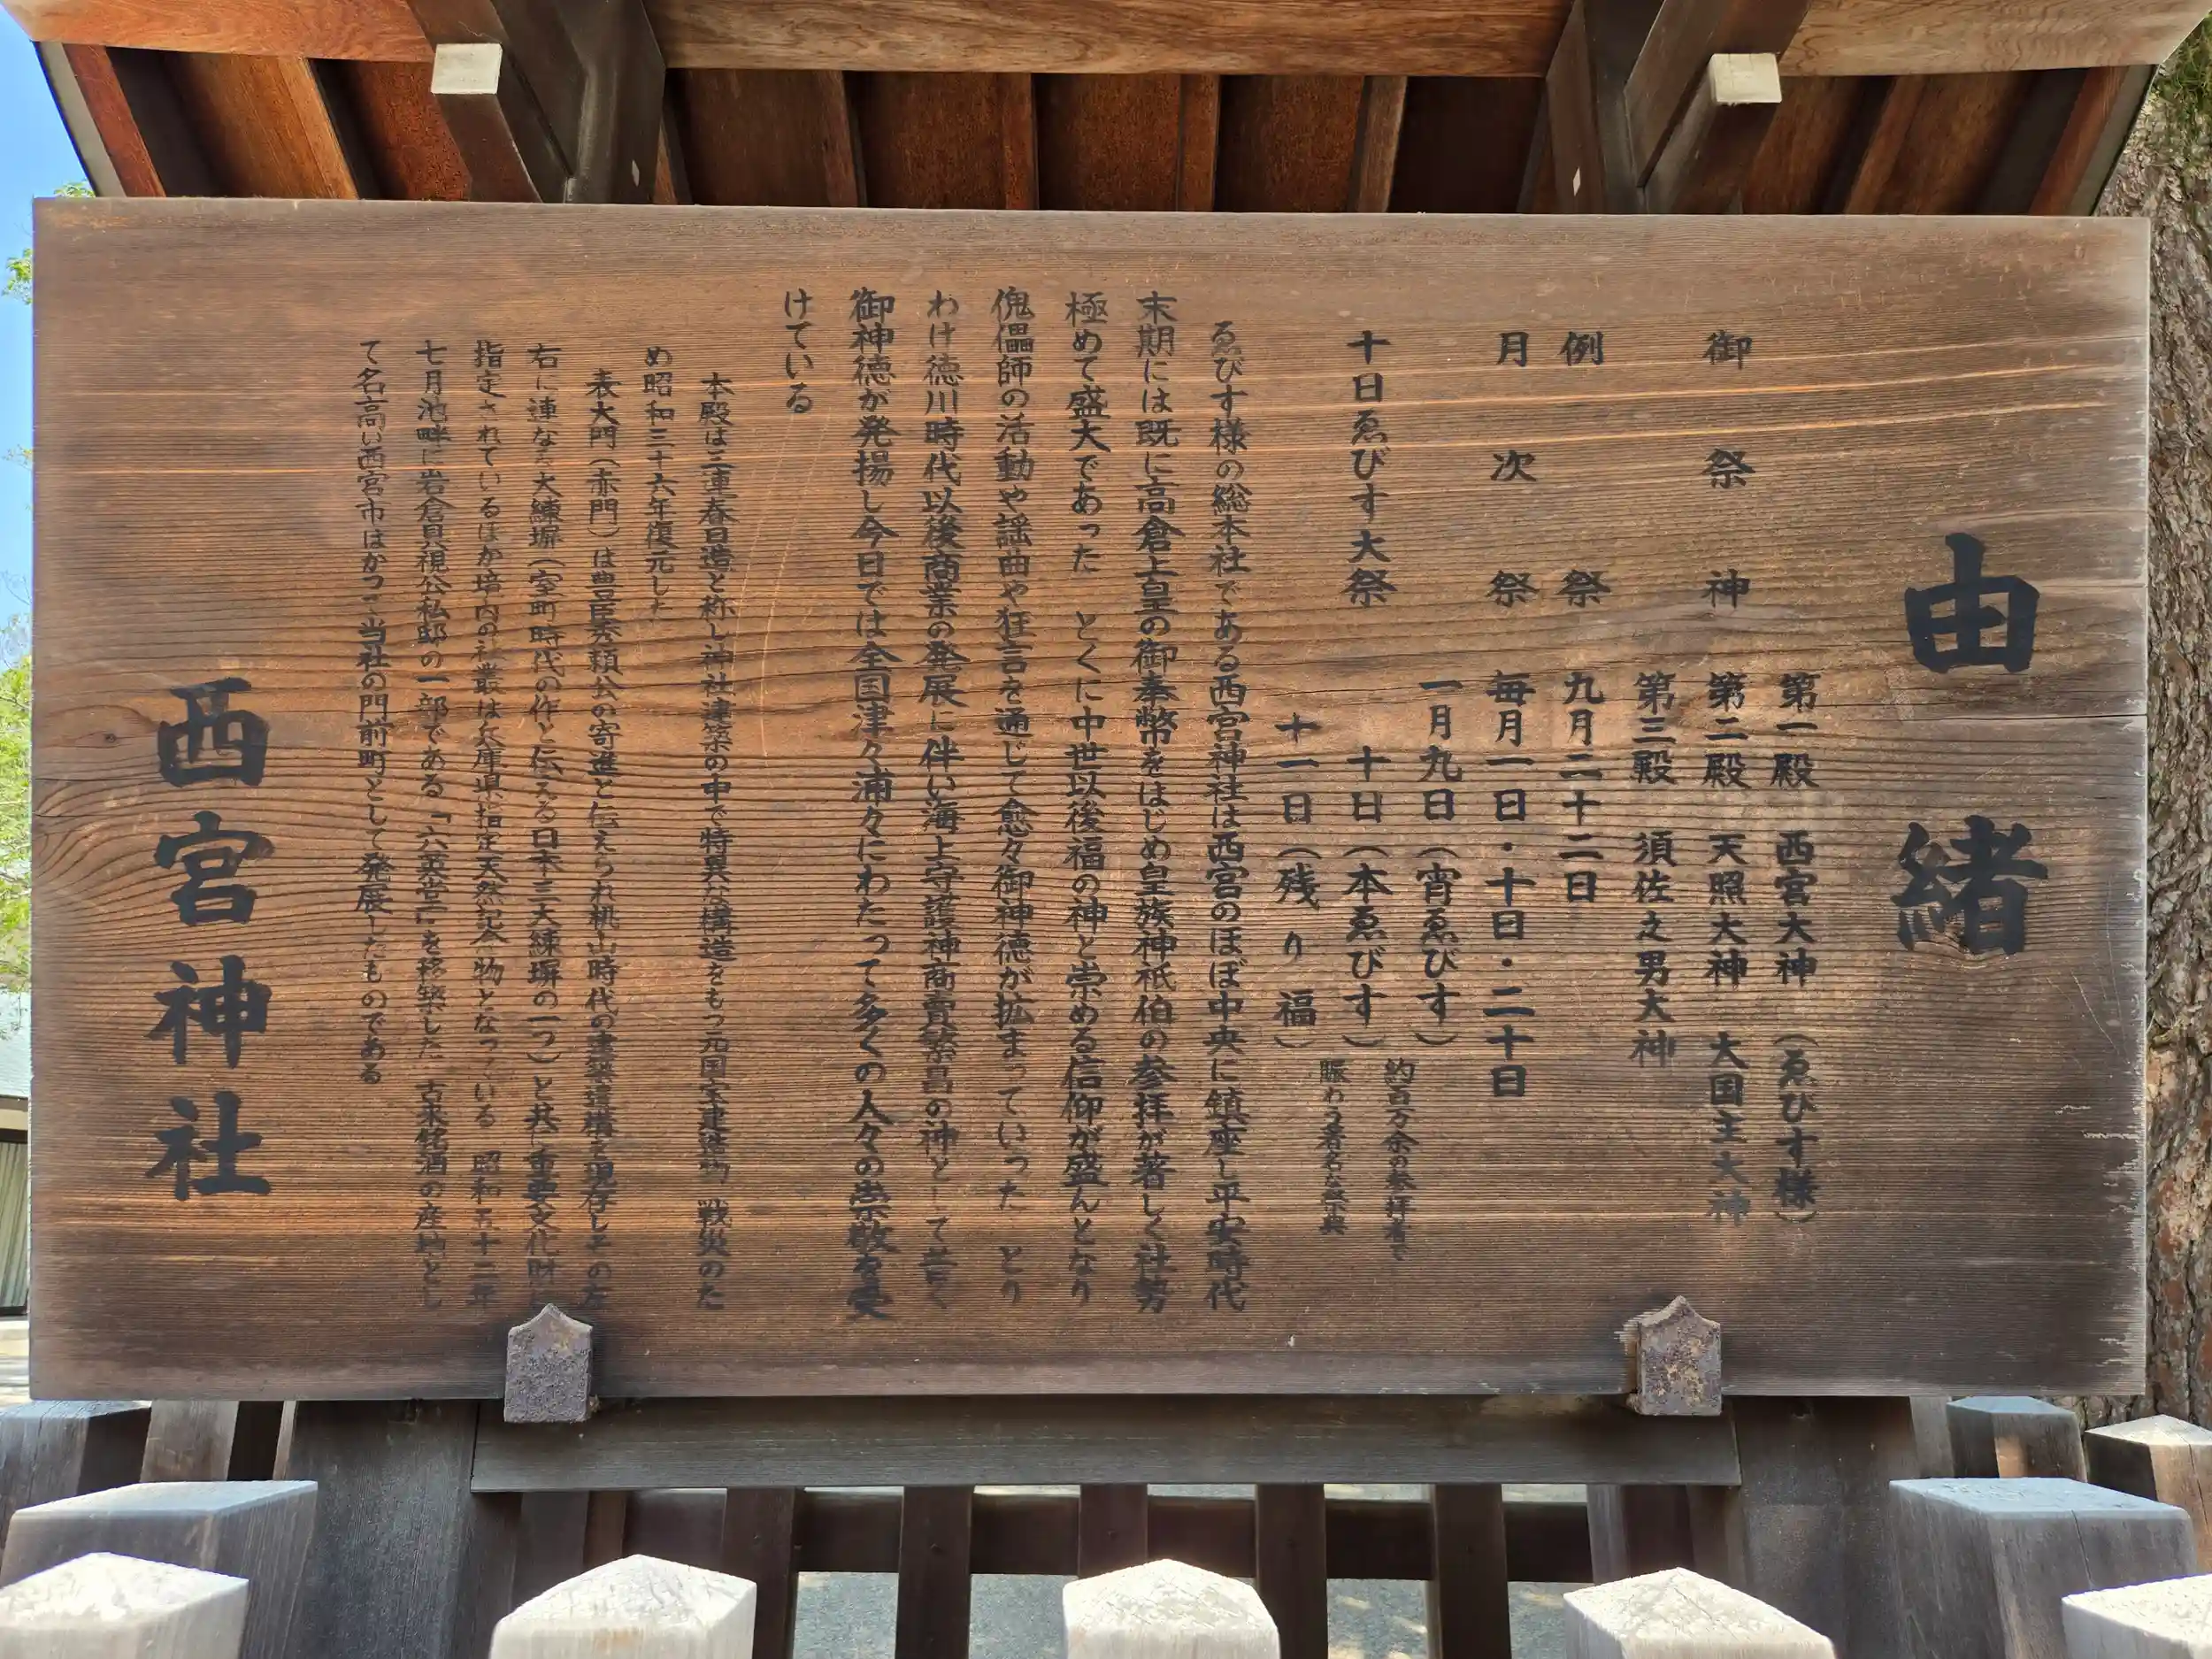 由緒
第一殿 西宮大神 (ゑびす様)
御祭神 第二殿 天照大神 大国主大神
第三殿 須佐之男大神
例祭 九月二十二日
月次祭 毎月一日・十日・二十日
一月九日(宵ゑびす)
十日ゑびす大祭 十日(本ゑびす)
十一日(残り福)
約百万余の参拝者で
賑わう著名な祭典
ゑびす様の総本社である西宮神社は西宮のほぼ中央に鎮座し平安時代
末期には既に高倉上皇の御奉幣をはじめ皇族神祇伯の参拝が著しく社勢
極めて盛大であった とくに中世以後福の神と崇める信仰が盛んとなり
傀儡師の活動や謡曲や狂言を通じて愈々御神徳が拡まっていった とり
わけ徳川時代以後商業の発展に伴い海上守護神商売繁昌の神として普く
御神徳が発揚し今日では全国津々浦々にわたって多くの人々の崇敬を受
けている
本殿は三連春日造と称し神社建築の中で特異な構造をもつ元国宝建造物 戦災のた
め昭和三十六年復元した
表大門(赤門)は豊臣秀頼公の寄進と伝えられ桃山時代の建築遺構を現存しその左
右に連なる大練塀(室町時代の作と伝える日本三大練塀の一つ)と共に重要文化財に
指定されているほか境内の社叢は兵庫県指定天然記念物となっている 昭和五十二年
七月池畔に岩倉具視公私邸の一部である「六英堂」を移築した 古来銘酒の産地とし
て名高い西宮市はかつて当社の門前町として発展したものである
西宮神社